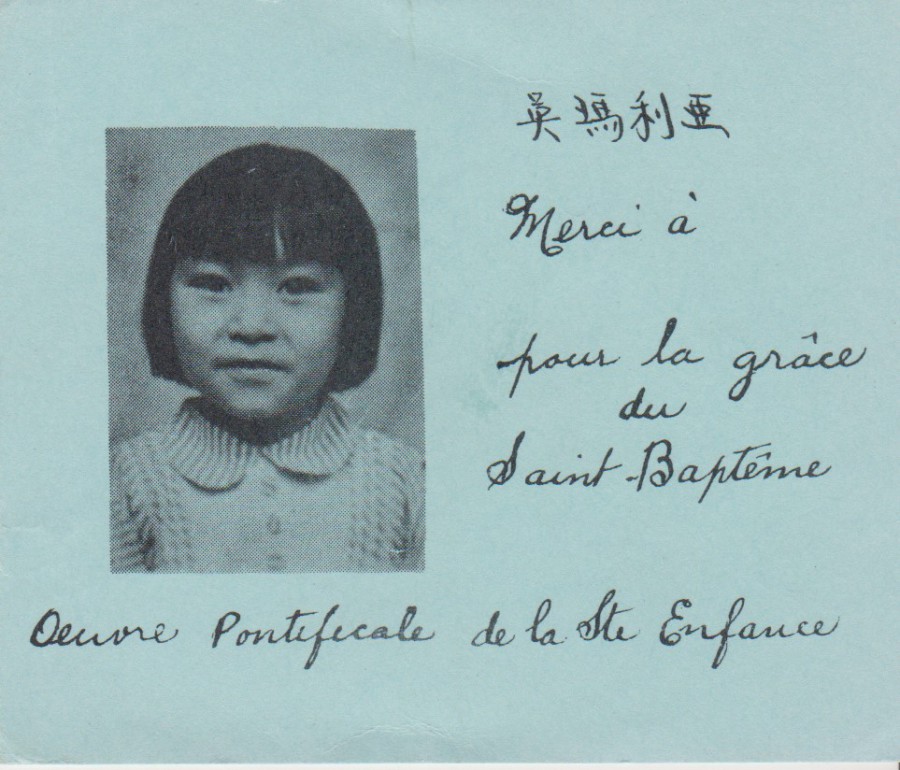 英瑪利亞
Merci à
pour la grâce
du
Saint-Baptême
Oeuvre Pontificale de la Ste Enfance